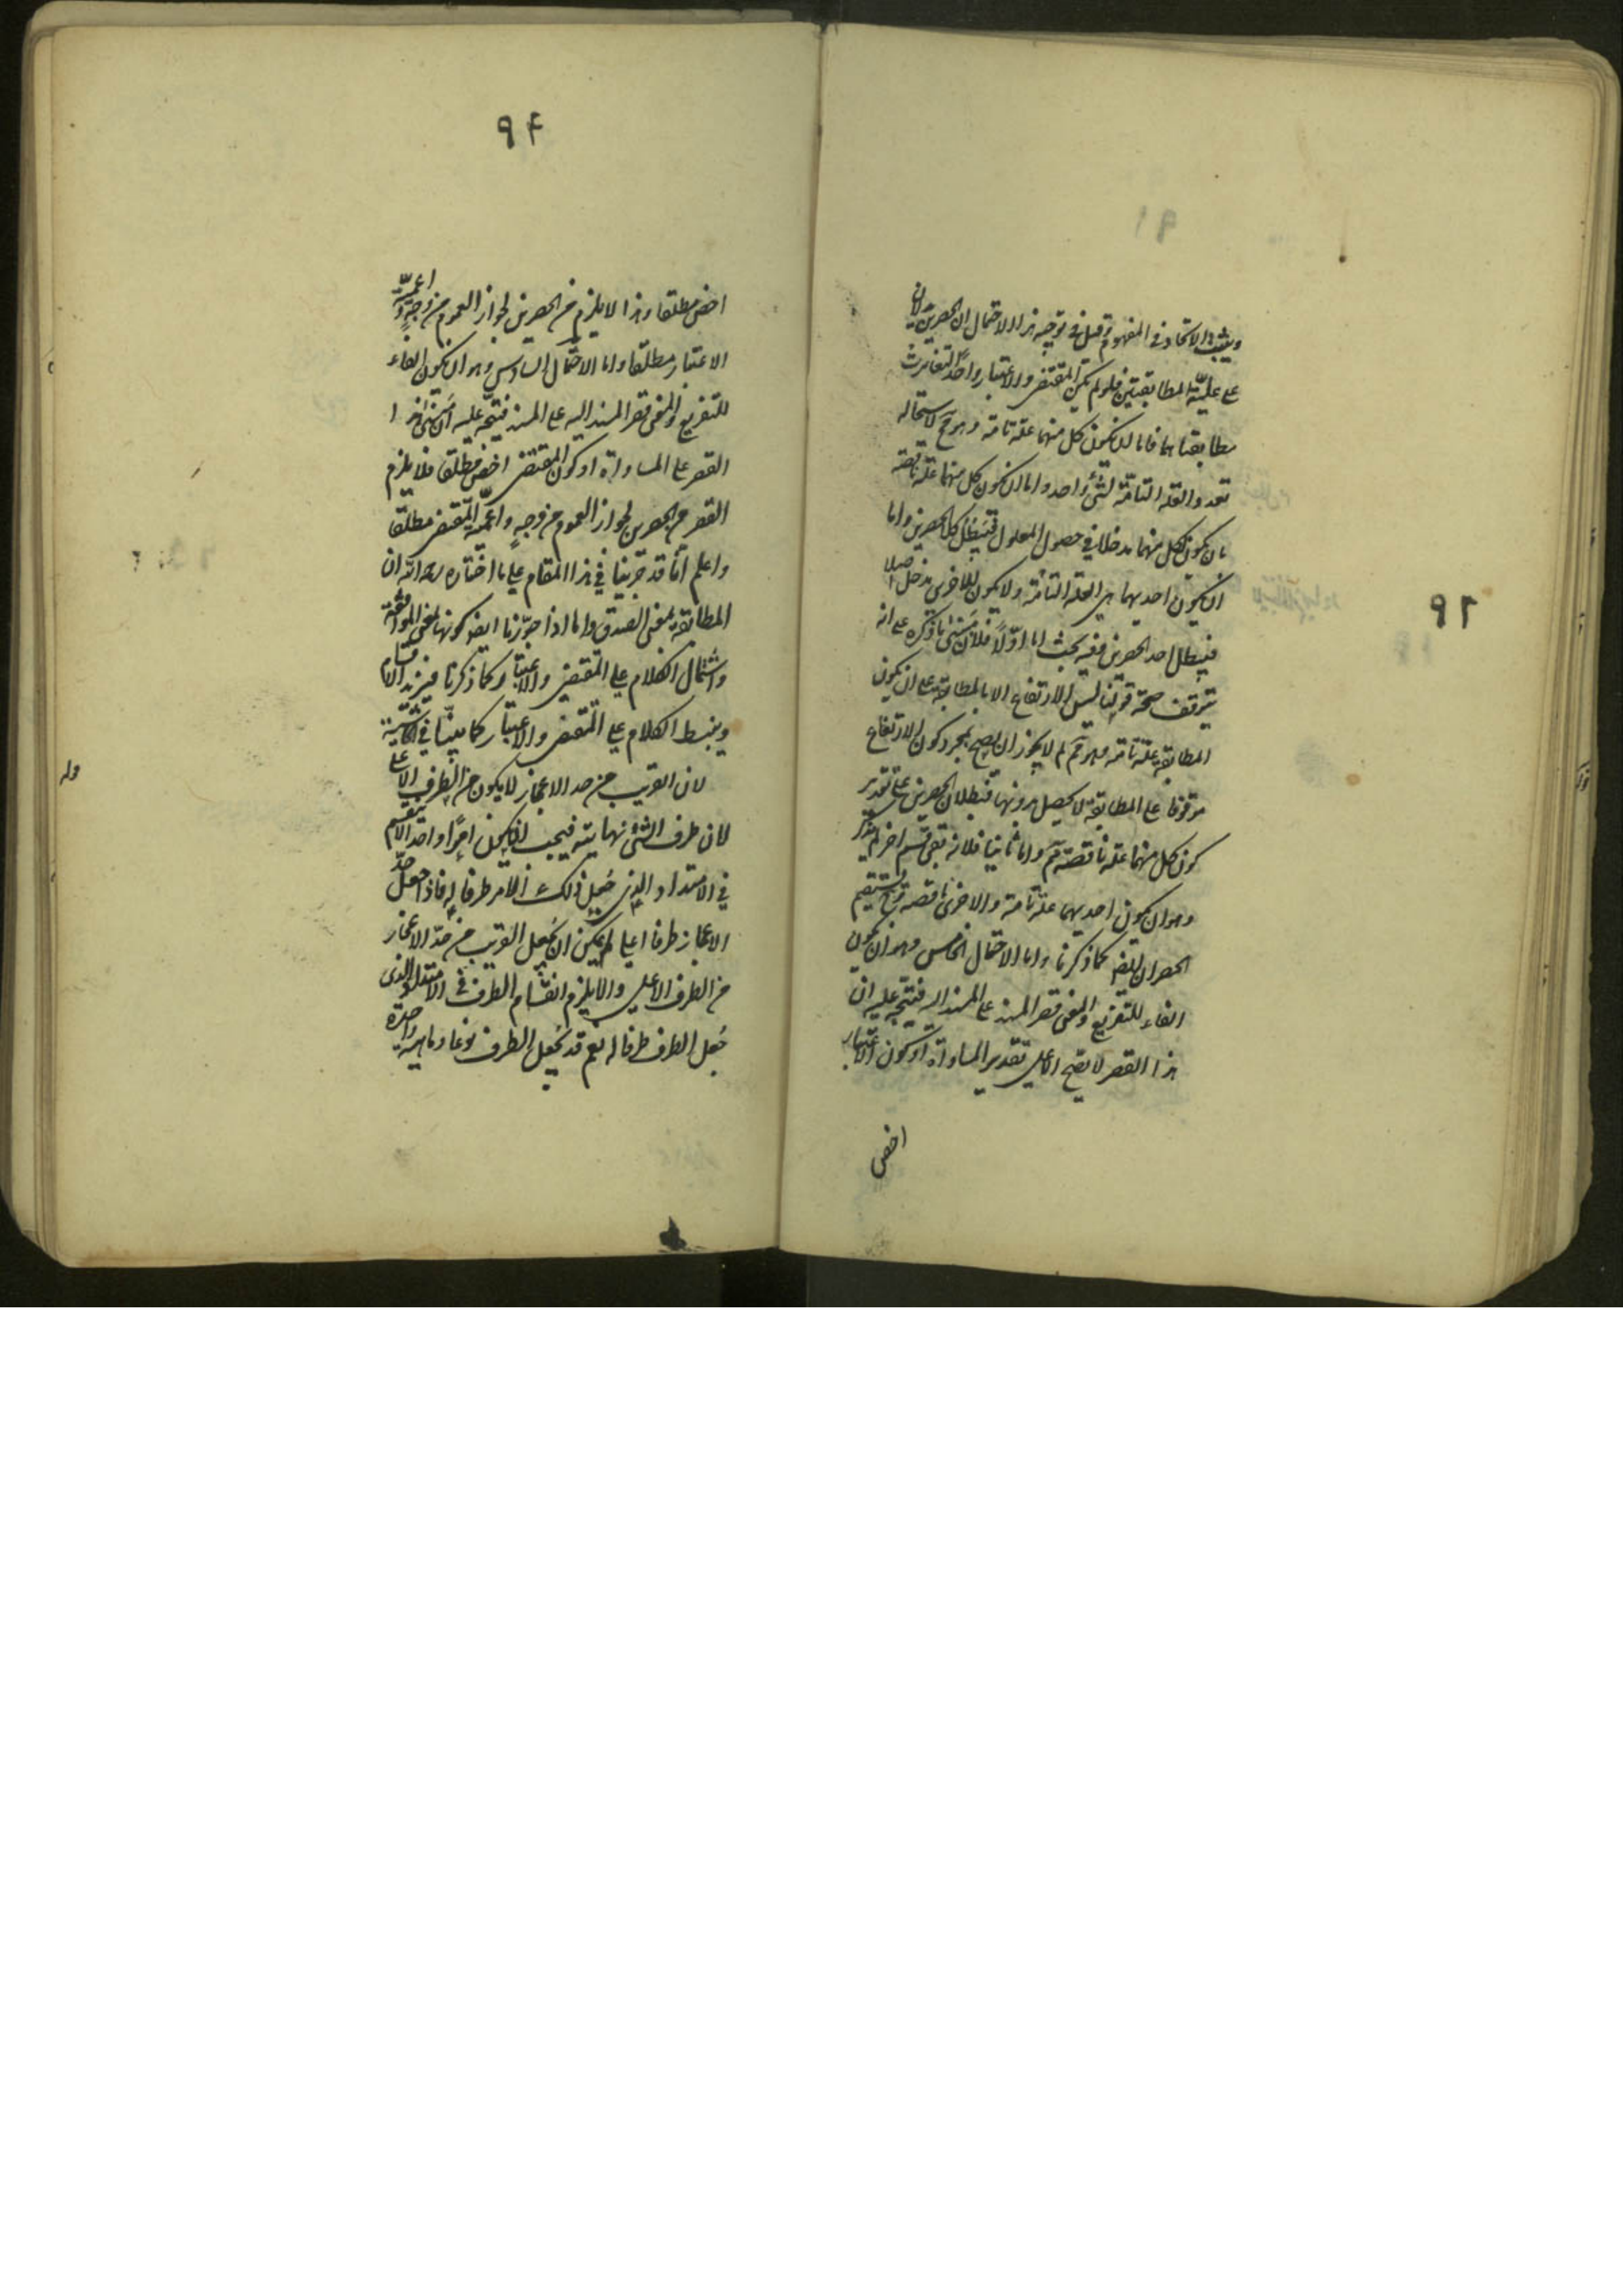 ويثبت الاتحاد في المفهوم وقيل في توجيه هذا الاحتمال ان الحصرين يدلان
على علية المطابقتين فلو لم يكن المقتضى والاعتبار واحدا لتغايرت
مطابقتاهما فاما ان يكون كل منهما علة تامة وهو مح لاستحالة
تعدد العلة التامة لشئ واحد واما ان يكون كل منهما علة ناقصة
بان يكون لكل منهما مدخلا في حصول المعلول فيبطل كلا الحصرين واما
ان يكون احديهما هى العلة التامة ولا يكون للاخرى مدخل اصلا
فيبطل احد الحصرين ففيه بحث اما اولا فلان مبنى ما ذكره على انه
يتوقف صحة قولنا ليس الارتفاع الا بالمطابقة على ان يكون
المطابقة علة تامة وهو مم لم لا يجوز ان يصح بمجرد كون الارتفاع
موقوفا على المطابقة لا يحصل بدونها فبطلان الحصرين على تقدير
كون كل منهما علة ناقصة مم واما ثانيا فلانه بقى قسم اخر لم يذكر
وهو ان يكون احديهما علة تامة والاخرى ناقصة وح يستقيم
الحصران ايضا كما ذكرنا واما الاحتمال الخامس وهو ان يكون
الفاء للتفريع والمعنى قصر المسند على المسند اليه فيتجه عليه ان
هذا القصر لا يصح الا على تقدير المساواة او كون الاعتبار
اخص
٩٢
٩٤
اخص مطلقا وهذا لا يلزم من الحصرين لجواز العموم من وجه واعمية
الاعتبار مطلقا واما الاحتمال السادس وهو ان يكون الفاء
للتفريع والمعنى قصر المسند اليه على المسند فيتجه عليه ان مبنى هذا
القصر على المساواة او كون المقتضى اخص مطلقا فلا يلزم
القصر من الحصرين لجواز العموم من وجه واعمية المقتضى مطلقا
واعلم انا قد جرينا في هذا المقام على ما اختاره رحمه الله ان
المطابقة بمعنى الصدق واما اذا جوزنا ايضا كونها بمعنى الموافقة
واشتمال الكلام على المقتضى والاعتبار كما ذكرنا فيزيد الاقسام
وينبسط الكلام على المقتضى والاعتبار كما بينا في الحاشية
لان القريب من حد الاعجاز لا يكون من الطرف الاعلى
لان طرف الشئ نهايته فيجب ان يكون امرا واحدا لا ينقسم
في الامتداد الذى جعل ذلك الامر طرفا له فاذا جعل حد
الاعجاز طرفا اعلى لم يمكن ان يجعل القريب من حد الاعجاز
من الطرف الاعلى والا يلزم انقسام الطرف في الامتداد الذى
جعل الطرف طرفا له نعم قد يجعل الطرف نوعا وماهية واحدة